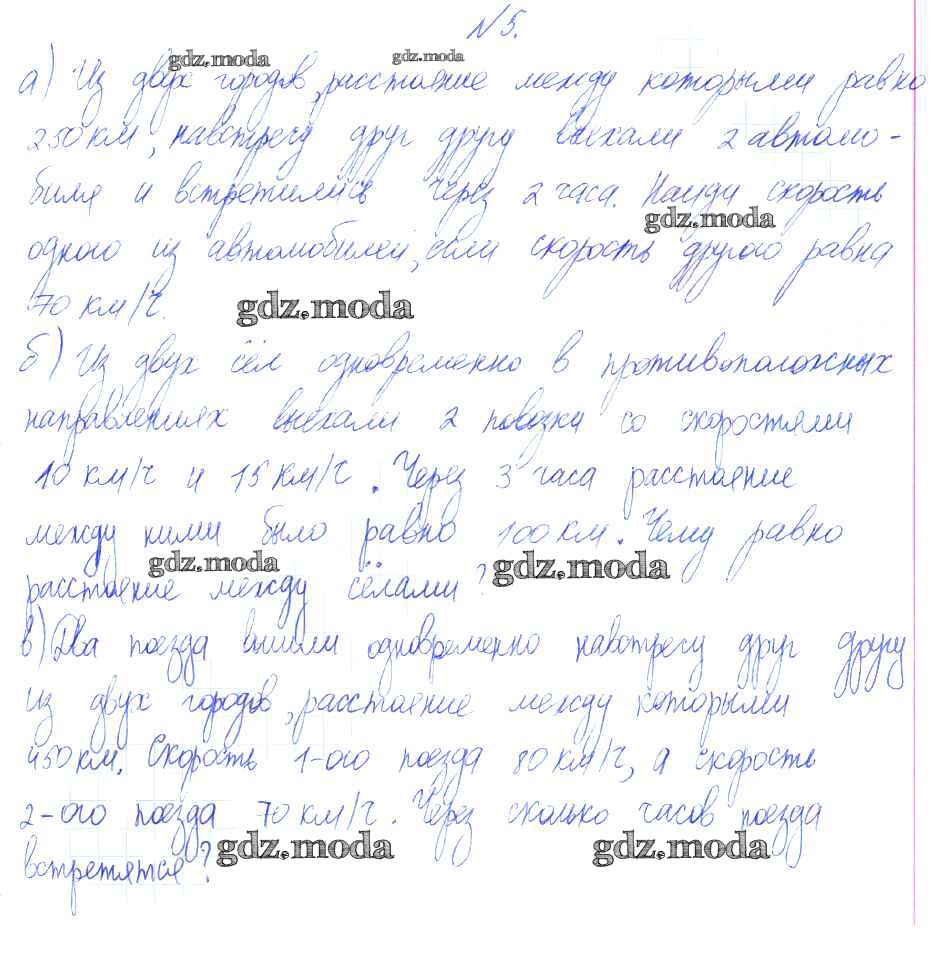 №5.
gdz.moda gdz.moda
а) Из двух городов, расстояние между которыми равно
250 км, навстречу друг другу выехали 2 автомо-
биля и встретились через 2 часа. Найди скорость
gdz.moda
одного из автомобилей, если скорость другого равна
70 км/ч.
gdz.moda
б) Из двух сёл одновременно в противоположных
направлениях выехали 2 повозки со скоростями
10 км/ч и 15 км/ч. Через 3 часа расстояние
между ними было равно 100 км. Чему равно
gdz.moda gdz.moda
расстояние между сёлами?
в) Два поезда вышли одновременно навстречу друг другу
из двух городов, расстояние между которыми
450 км. Скорость 1-ого поезда 80 км/ч, а скорость
2-ого поезда 70 км/ч. Через сколько часов поезда
встретятся?
gdz.moda gdz.moda